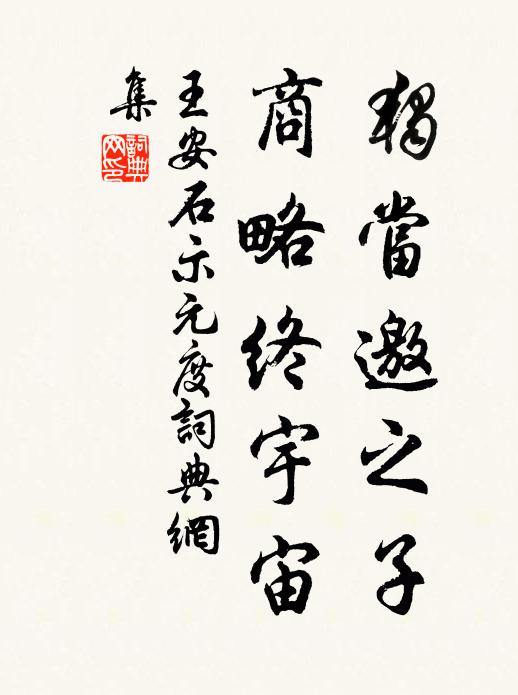 獨當邀之子
商略終宇宙
王安石示元度詞典網
集
詞典
网印